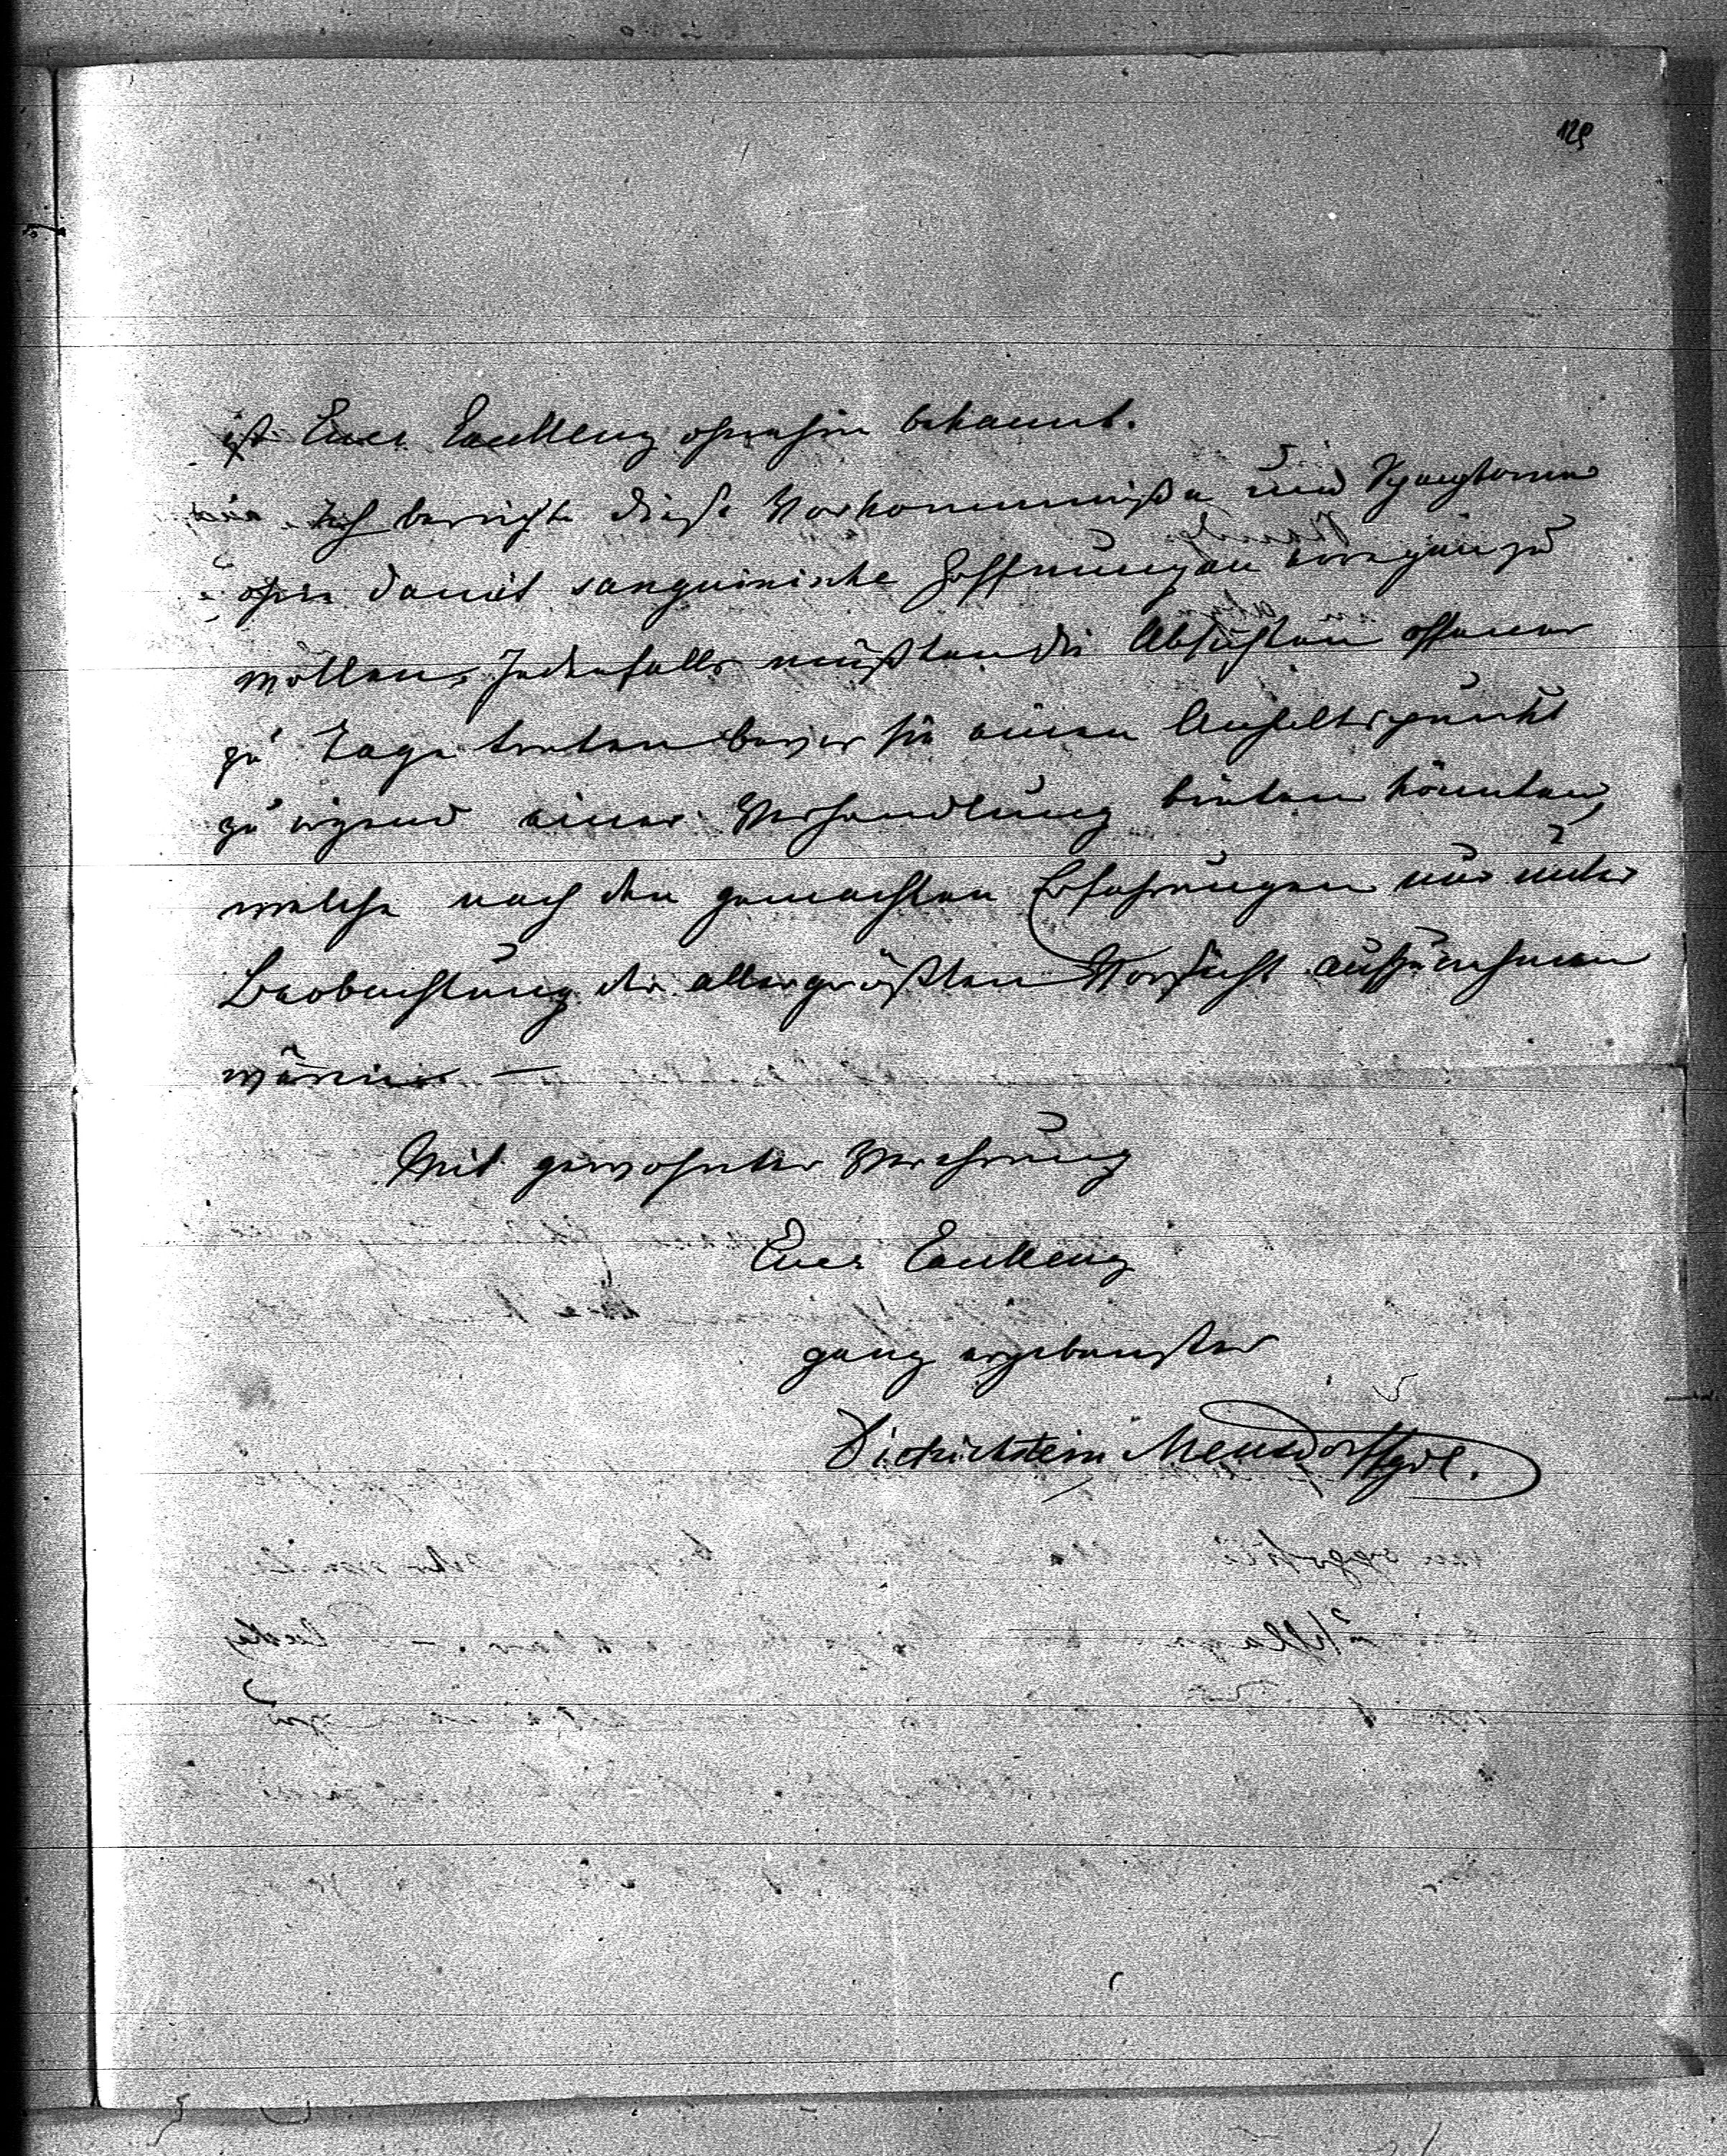 129
ist Euer Excellenz ohnehin bekannt.
Ich berichte diese Vorkommniße und Symptome
ohne damit sanguinische Hoffnungen erregen zu
wollen, Jedenfalls müßten die Absichten offener
zu Tage treten bevor sie einen Anhaltspunkt
zu irgend einer Verhandlung bieten könnten,
welche nach den gemachten Erfahrungen nur unter
Beobachtung der allergrößten Vorsicht aufzunehmen
wären —
Mit gewohnter Verehrung
Euer Excellenz
ganz ergebenster
Dietrichstein Mensdorff